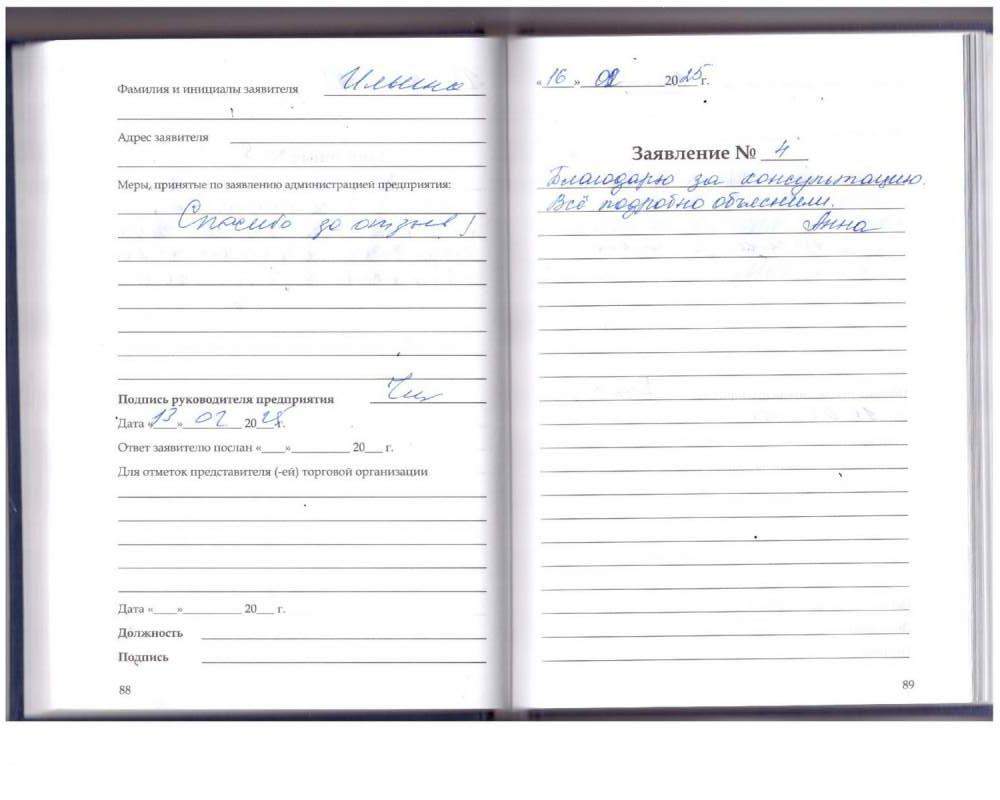 Фамилия и инициалы заявителя Ильина
Адрес заявителя
Меры, принятые по заявлению администрацией предприятия:
Спасибо за отзыв!
Подпись руководителя предприятия
Дата «13» 02 2025 г.
Ответ заявителю послан «___»__________ 20___ г.
Для отметок представителя (-ей) торговой организации
Дата «____»__________ 20___ г.
Должность
Подпись
88
«16» 02 2025 г.
Заявление № 4
Благодарю за консультацию.
Всё подробно объяснили.
Анна
89